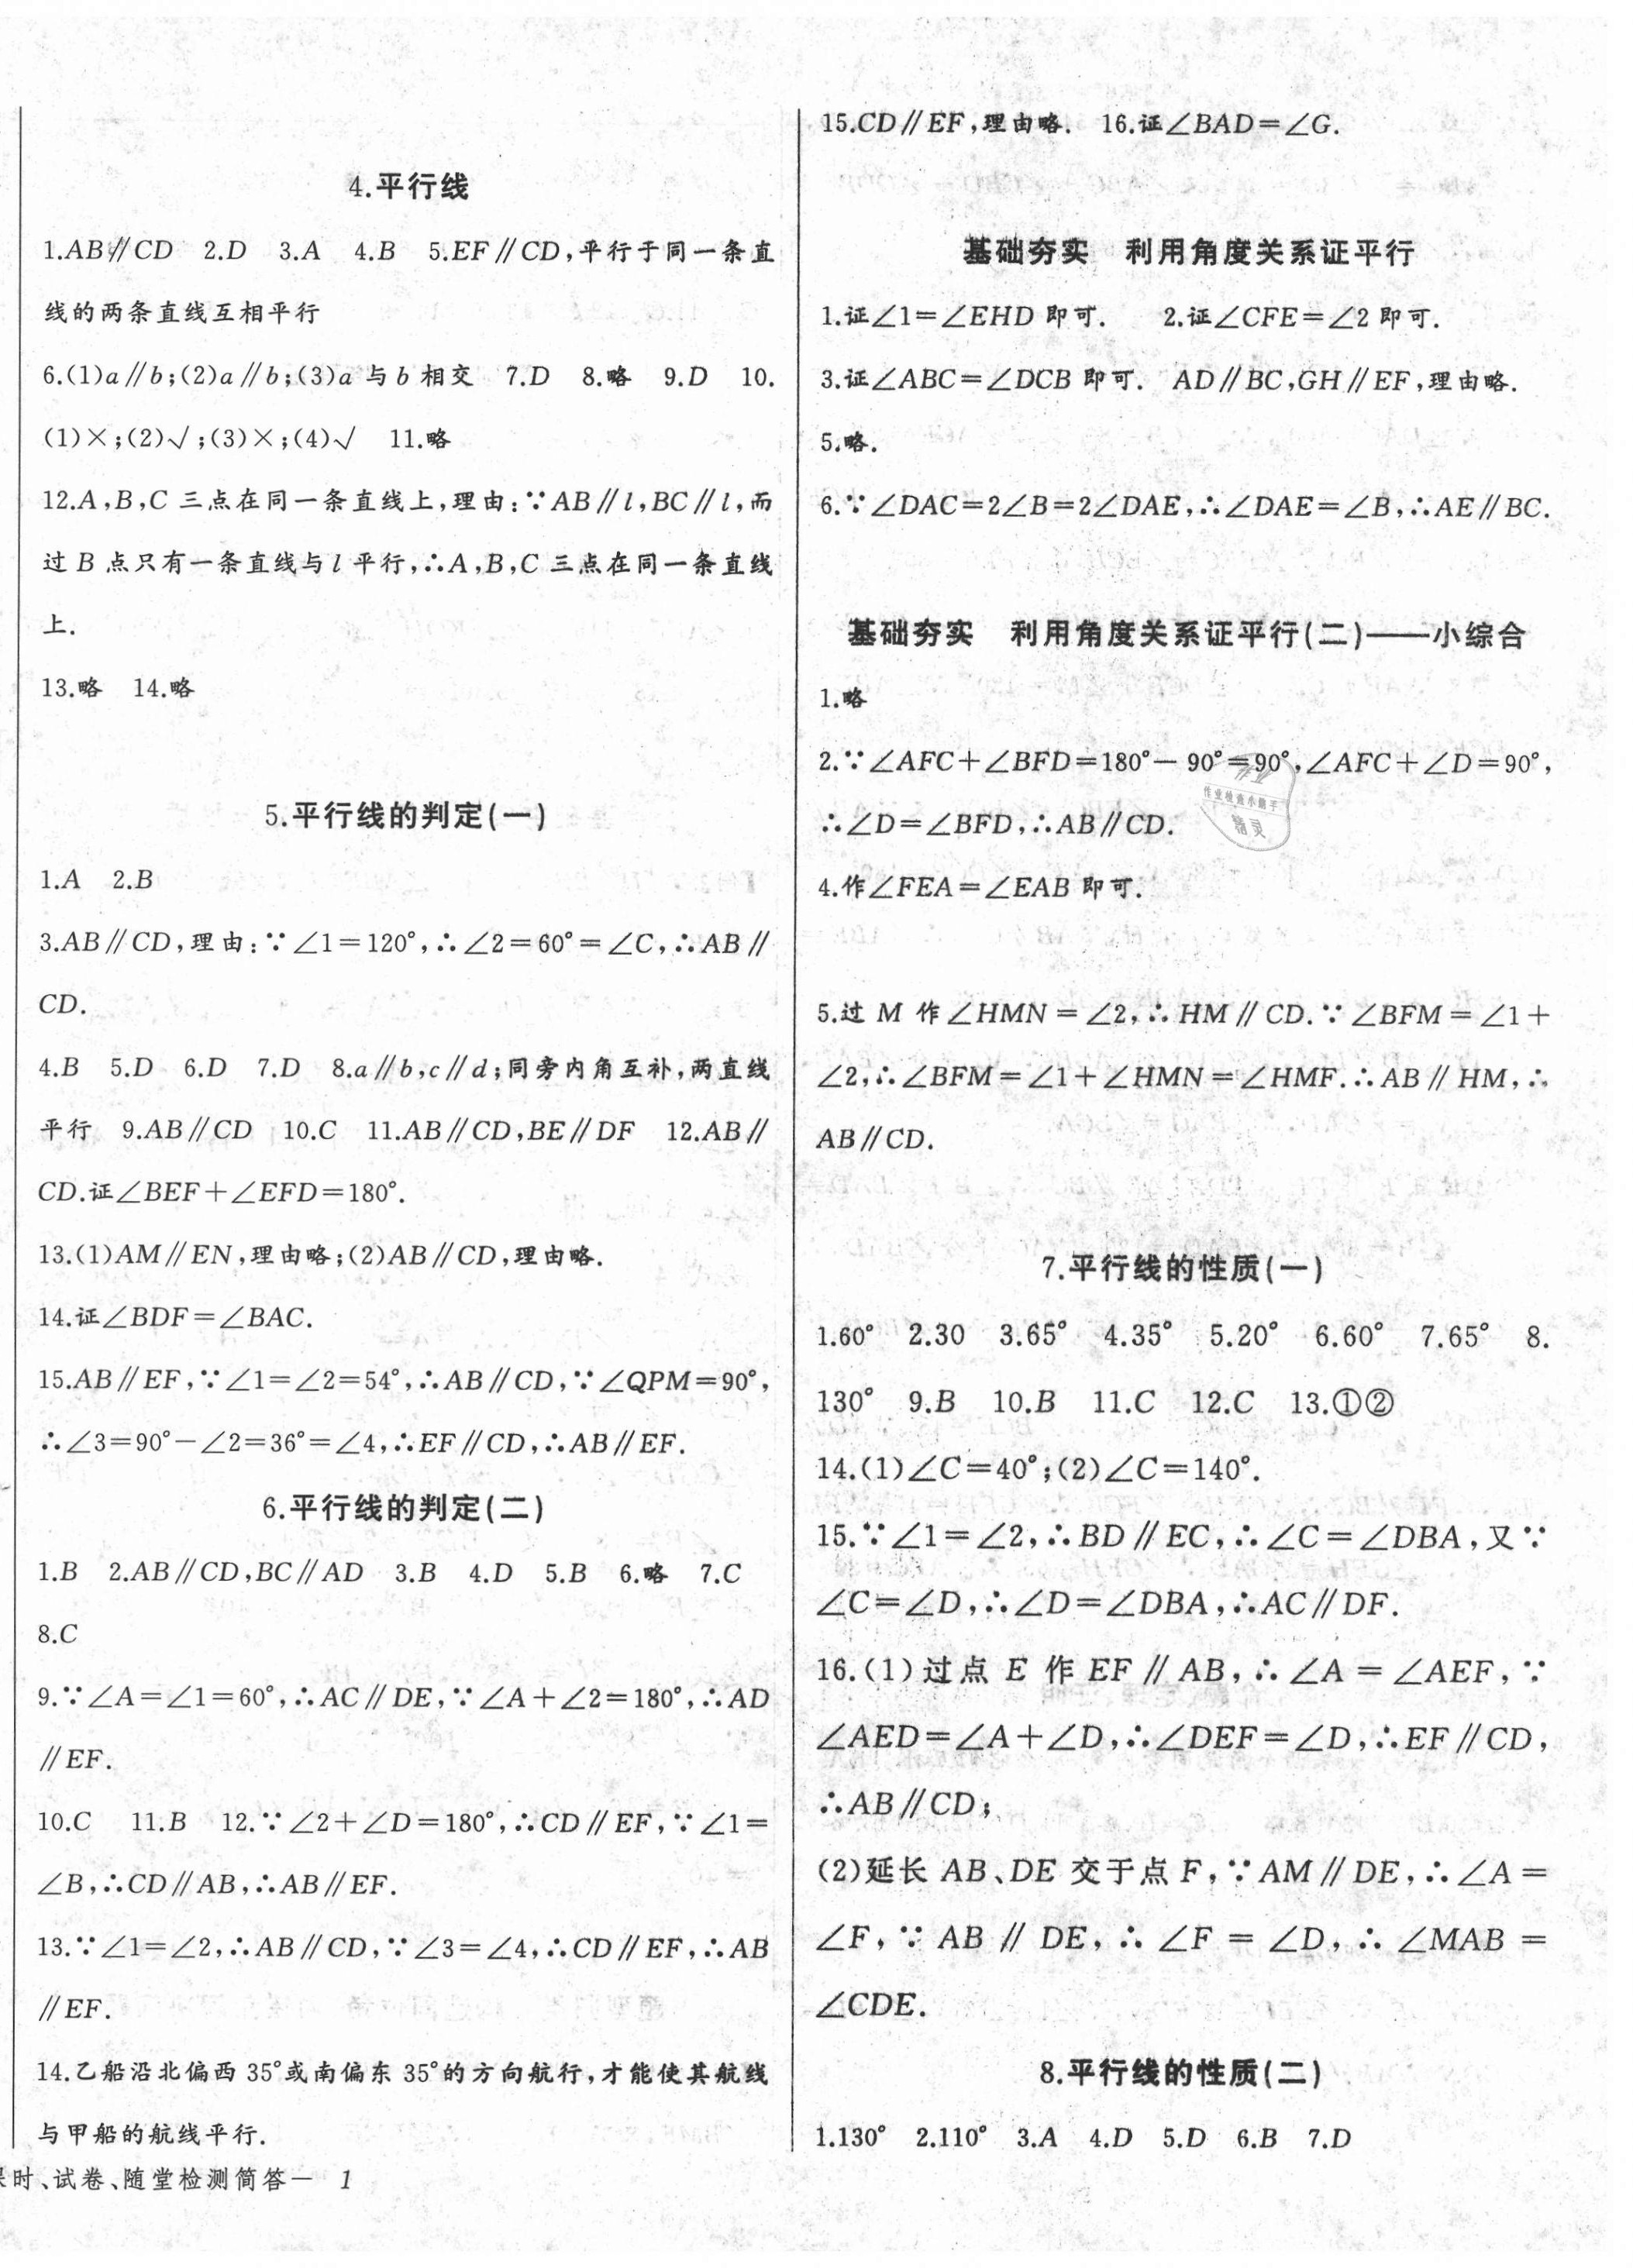 4.平行线
1.AB∥CD 2.D 3.A 4.B 5.EF∥CD,平行于同一条直
线的两条直线互相平行
6.(1)a∥b;(2)a∥b;(3)a与b相交 7.D 8.略 9.D 10.
(1)×;(2)√;(3)×;(4)√ 11.略
12.A,B,C三点在同一条直线上,理由:∵AB∥l,BC∥l,而
过B点只有一条直线与l平行,∴A,B,C三点在同一条直线
上.
13.略 14.略
5.平行线的判定(一)
1.A 2.B
3.AB∥CD,理由:∵∠1=120°,∴∠2=60°=∠C,∴AB∥
CD.
4.B 5.D 6.D 7.D 8.a∥b,c∥d;同旁内角互补,两直线
平行 9.AB∥CD 10.C 11.AB∥CD,BE∥DF 12.AB∥
CD.证∠BEF+∠EFD=180°.
13.(1)AM∥EN,理由略;(2)AB∥CD,理由略.
14.证∠BDF=∠BAC.
15.AB∥EF,∵∠1=∠2=54°,∴AB∥CD,∵∠QPM=90°,
∴∠3=90°-∠2=36°=∠4,∴EF∥CD,∴AB∥EF.
6.平行线的判定(二)
1.B 2.AB∥CD,BC∥AD 3.B 4.D 5.B 6.略 7.C
8.C
9.∵∠A=∠1=60°,∴AC∥DE,∵∠A+∠2=180°,∴AD
∥EF.
10.C 11.B 12.∵∠2+∠D=180°,∴CD∥EF,∵∠1=
∠B,∴CD∥AB,∴AB∥EF.
13.∵∠1=∠2,∴AB∥CD,∵∠3=∠4,∴CD∥EF,∴AB
∥EF.
14.乙船沿北偏西35°或南偏东35°的方向航行,才能使其航线
与甲船的航线平行.
时、试卷、随堂检测简答— 1
15.CD∥EF,理由略. 16.证∠BAD=∠G.
基础夯实 利用角度关系证平行
1.证∠1=∠EHD即可. 2.证∠CFE=∠2即可.
3.证∠ABC=∠DCB即可. AD∥BC,GH∥EF,理由略.
5.略.
6.∵∠DAC=2∠B=2∠DAE,∴∠DAE=∠B,∴AE∥BC.
基础夯实 利用角度关系证平行(二)——小综合
1.略
2.∵∠AFC+∠BFD=180°-90°=90°,∠AFC+∠D=90°,
∴∠D=∠BFD,∴AB∥CD.
作业检查小助手
精灵
4.作∠FEA=∠EAB即可.
5.过M作∠HMN=∠2,∴HM∥CD.∵∠BFM=∠1+
∠2,∴∠BFM=∠1+∠HMN=∠HMF.∴AB∥HM,∴
AB∥CD.
7.平行线的性质(一)
1.60° 2.30 3.65° 4.35° 5.20° 6.60° 7.65° 8.
130° 9.B 10.B 11.C 12.C 13.①②
14.(1)∠C=40°;(2)∠C=140°.
15.∵∠1=∠2,∴BD∥EC,∴∠C=∠DBA,又∵
∠C=∠D,∴∠D=∠DBA,∴AC∥DF.
16.(1)过点E作EF∥AB,∴∠A=∠AEF,∵
∠AED=∠A+∠D,∴∠DEF=∠D,∴EF∥CD,
∴AB∥CD;
(2)延长AB、DE交于点F,∵AM∥DE,∴∠A=
∠F,∵AB∥DE,∴∠F=∠D,∴∠MAB=
∠CDE.
8.平行线的性质(二)
1.130° 2.110° 3.A 4.D 5.D 6.B 7.D